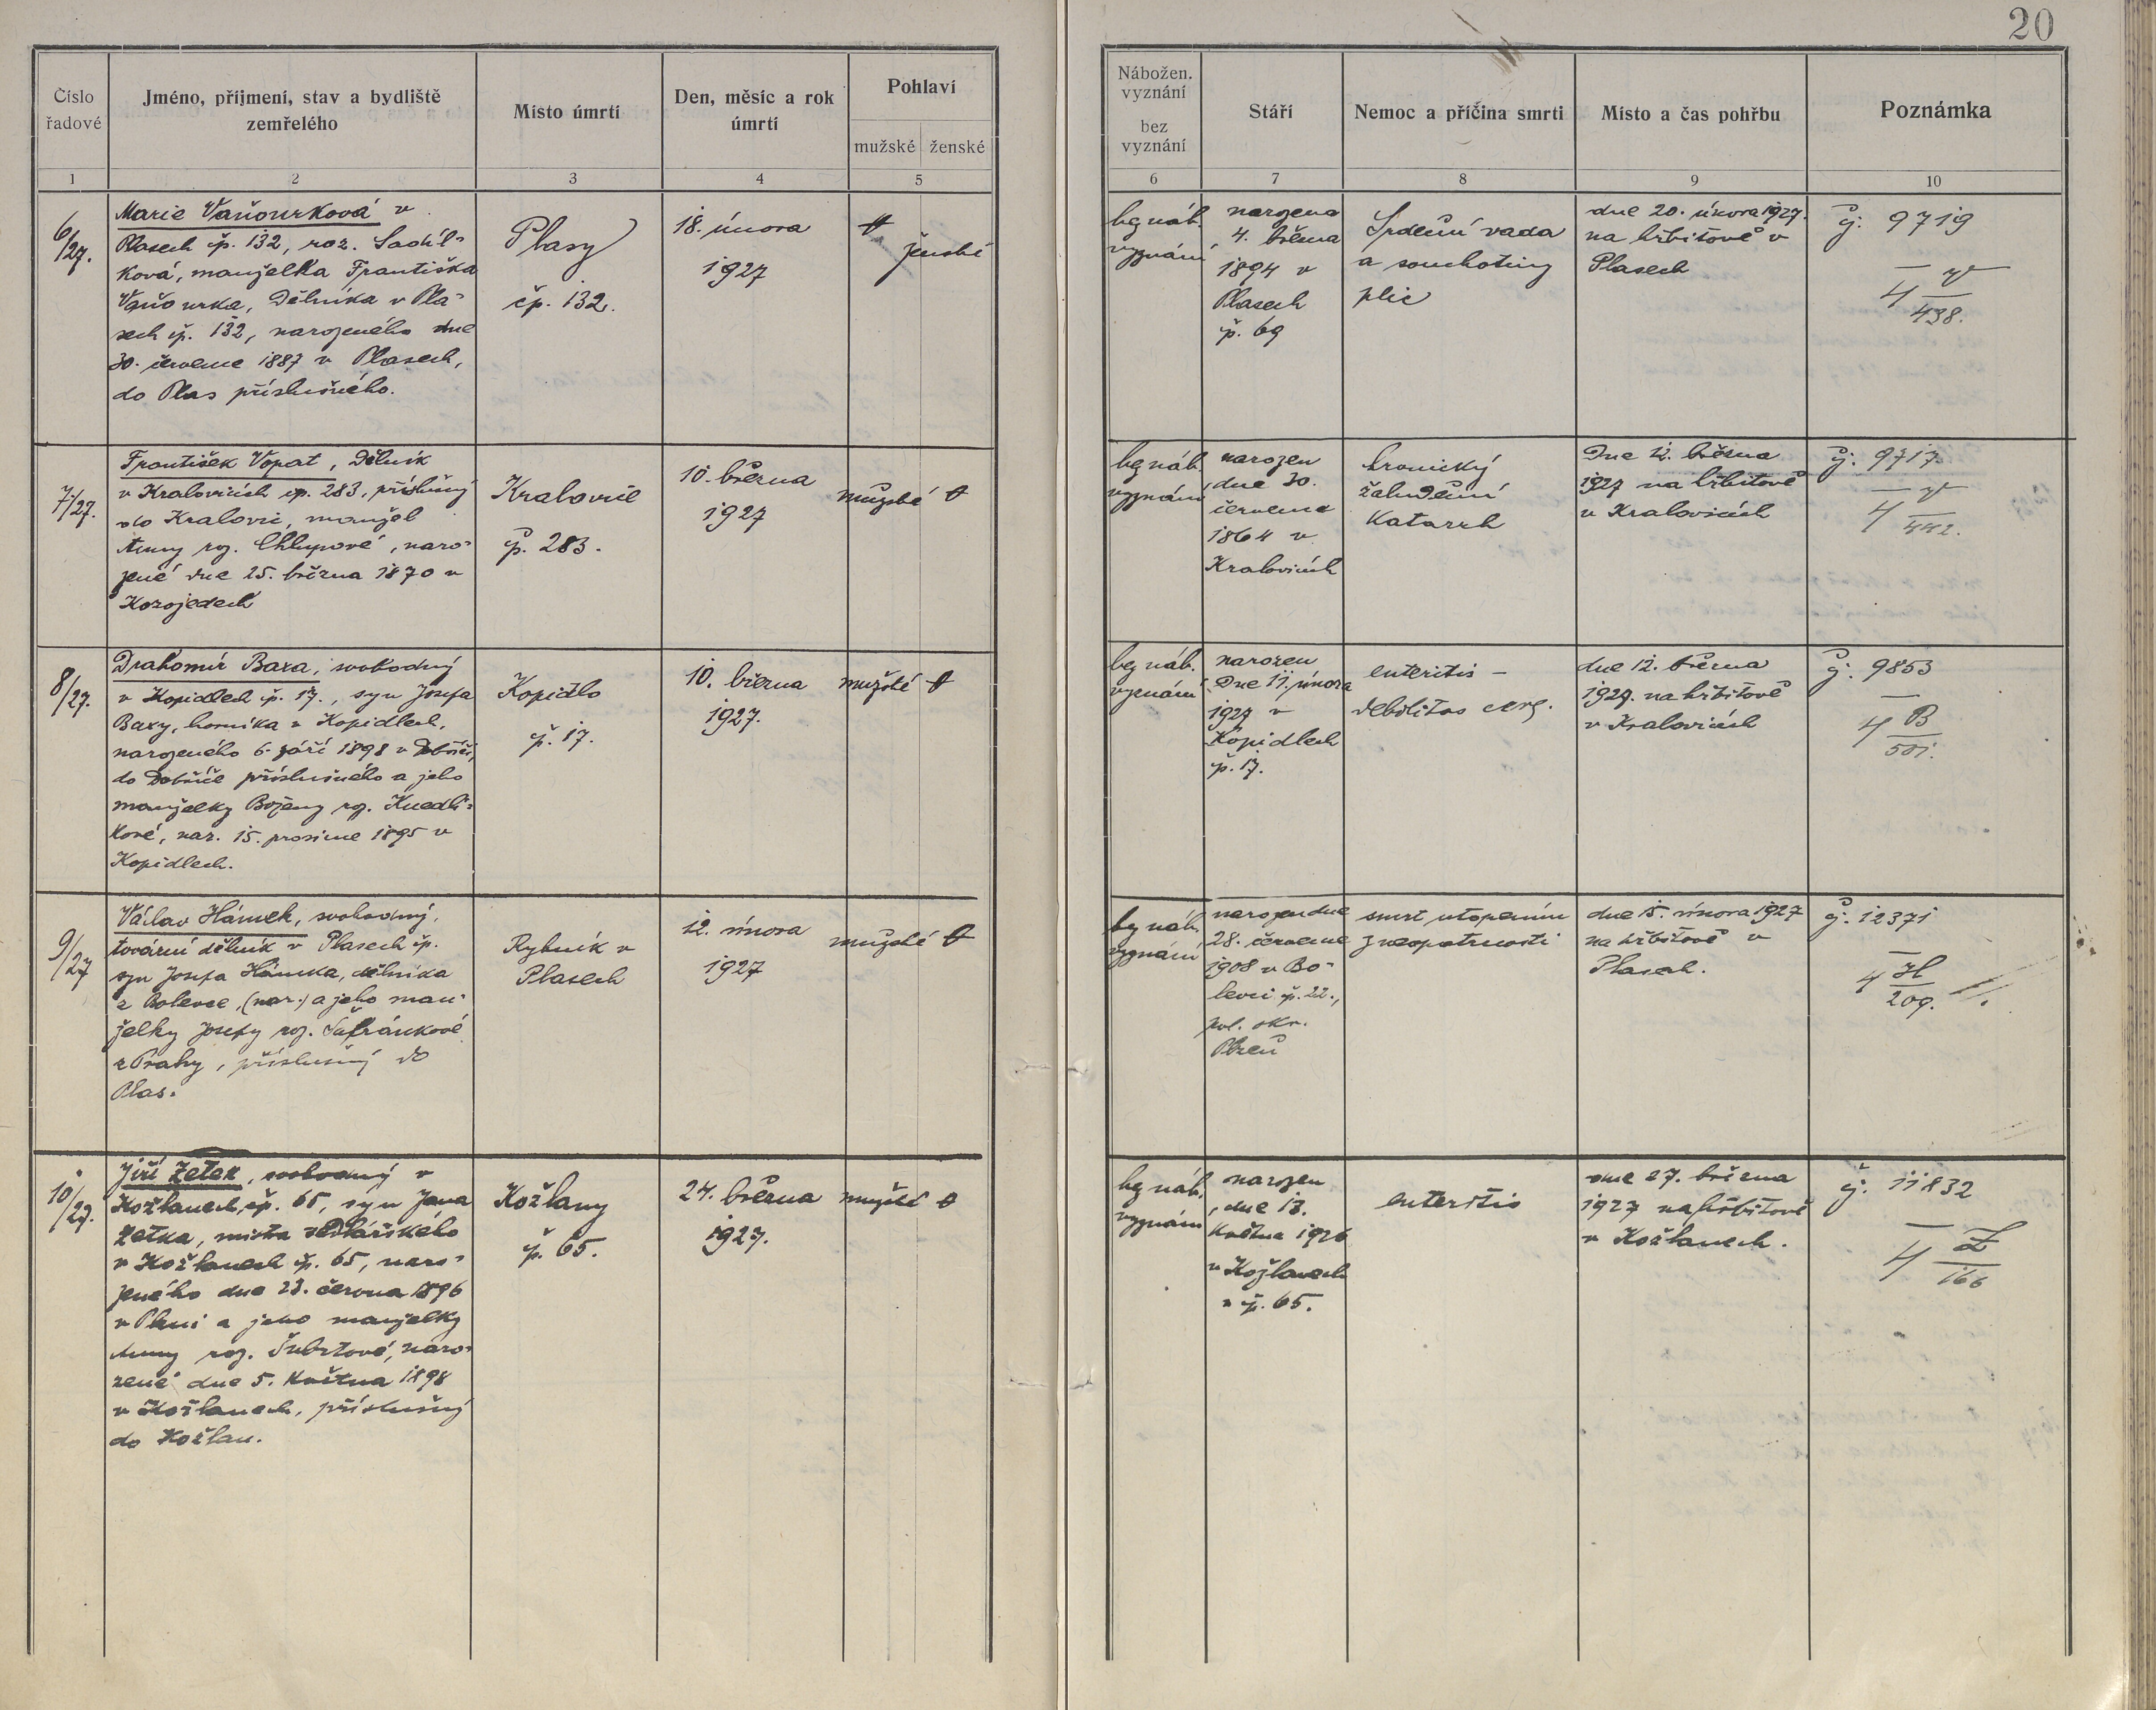 20
Číslo
řadové
Jméno, příjmení, stav a bydliště
zemřelého
Místo úmrtí
Den, měsíc a rok
úmrtí
Pohlaví
mužské ženské
Nábožen.
vyznání
bez
vyznání
Stáří
Nemoc a příčina smrti
Místo a čas pohřbu
Poznámka
1 2 3 4 5 6 7 8 9 10
6/27.
Marie Vaňourková v
Plasech čp. 132, roz.
ková, manželka Františka
Vaňourka, dělníka v Pla-
sech čp. 132, narozeného dne
30. července 1887 v Plasech,
do Plas příslušného.
Plasy
čp. 132.
18. února
1927
ženské
bez náb.
vyznání
narozena
4. března
1894 v
Plasech
čp. 69
Srdeční vada
a souchotiny
plic
dne 20. února 1927.
na hřbitově v
Plasech
čj. 9719
4 V/438.
7/27.
František Vopat, dělník
v Kralovicích čp. 283, příslušný
do Kralovic, manžel
Anny roz. Chlupové, naro-
zené dne 25. března 1870 v
Kozojedech
Kralovice
čp. 283.
10. března
1927
mužské
bez náb.
vyznání
narozen
dne 30.
července
1864 v
Kralovicích
chronický
žaludeční
katarrh
Dne 12. března
1927 na hřbitově
v Kralovicích
čj. 9717
4 V/442.
8/27.
Drahomír Baxa, svobodný
v Kopidlech č. 17., syn Josefa
Baxy, horníka v Kopidlech,
narozeného 6. září 1898 v Dobříči,
do Dobříče příslušného a jeho
manželky Boženy roz. Knedlí-
kové, nar. 15. prosince 1895 v
Kopidlech.
Kopidlo
č. 17.
10. března
1927.
mužské
bez náb.
vyznání
narozen
dne 11. února
1927 v
Kopidlech
čp. 17.
enteritis –
debilitas
dne 12. března
1927. na hřbitově
v Kralovicích
čj. 9853
4 B/501.
9/27
Václav Hánek, svobodný,
tovární dělník v Plasech čp.
syn Josefa Hánka, dělníka
z Bolevce, (nar.) a jeho man-
želky Josefy roz. Šafránkové
z Prahy, příslušný do
Plas.
Rybník v
Plasech
12. února
1927
mužské
bez náb.
vyznání
narozen dne
28. července
1908 v Bo-
levci č. 22.,
pol. okr.
Plzeň
smrt utopením
z neopatrnosti
dne 15. února 1927
na hřbitově v
Plasech.
čj. 12371
4 H/209.
10/27.
Jiří Zetek, svobodný v
Kožlanech, čp. 65, syn Jana
Zetka, mistra sedlářského
v Kožlanech čp. 65, naro-
zeného dne 23. června 1896
v Plzni a jeho manželky
Anny roz. Šubrtové, naro-
zené dne 5. května 1898
v Kožlanech, příslušný
do Kožlan.
Kožlany
č. 65.
24. března
1927.
mužské
bez náb.
vyznání
narozen
dne 13.
května 1926
v Kožlanech
v čp. 65.
enteritis
dne 27. března
1927 na hřbitově
v Kožlanech.
čj. 11832
4 Z/166